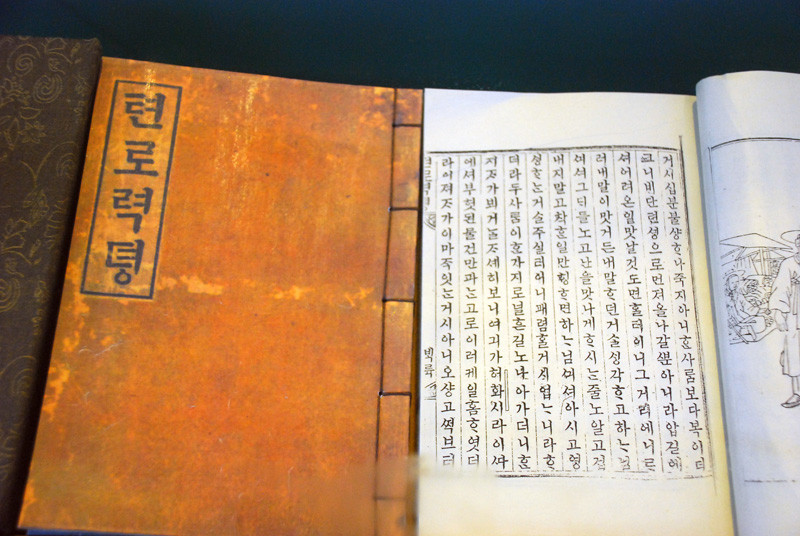 텬로력뎡
거시십분불샹ᄒᆞ나죽지아니ᄒᆞᆫ사ᄅᆞᆷ보다복이더
크니ᄇᆡ단텬셩으로먼져올나갈ᄲᅮᆫ아니라압길에
셔어려온일맛날것도면ᄒᆞᆯ터이니그거리에니ᄅᆞ
러내말이맛거든내말ᄒᆞ던거슬ᄉᆡᆼ각ᄒᆞ고하ᄂᆞ님
ᄭᅴ셔그ᄃᆡ들노고난을맛나게ᄒᆞ시ᄂᆞᆫ줄노알고겁
내지말고착ᄒᆞᆫ일만ᄒᆡᆼᄒᆞ면하ᄂᆞ님ᄭᅴ셔아시고영
ᄉᆡᆼᄒᆞᄂᆞᆫ거슬주실터이니패렴ᄒᆞᆯ거시업ᄂᆞ니라ᄒᆞ
더라두사ᄅᆞᆷ이ᄒᆞᆫ가지로널흔길노난아가더니ᄒᆞᆫ
져ᄌᆞ가뵈거ᄂᆞᆯᄌᆞ셰히보니여긔가허화시라이ᄯᅡ
에셔부헛된물건만파ᄂᆞᆫ고로이러케일홈ᄒᆞ엿더
라이져ᄌᆞ가이마즉잇ᄂᆞᆫ거시아니오샹고ᄶᅥᆨ브터
텬로력뎡
ᄇᆡᆨ륙